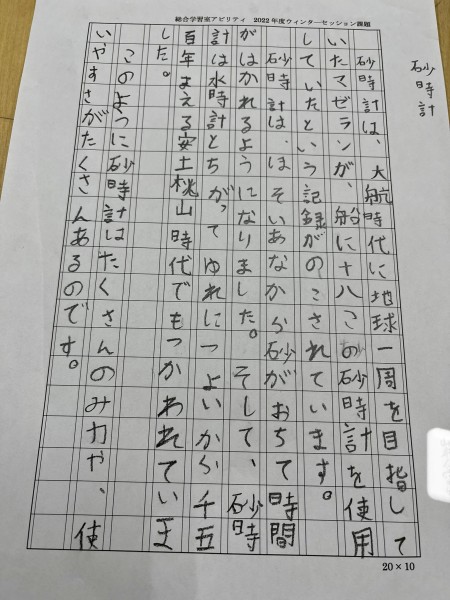 総合学習室アビリティ 2022年度ウィンターセッション課題
砂時計
砂時計は、大航時代に地球一周を目指して
いたマゼランが、船に十八この砂時計を使用
していたという記録がのこされています。
砂時計は、ほそいあなから砂がおちて時間
がはかれるようになりました。そして、砂時
計は水時計とちがってゆれにつよいから千五
百年まえる安土桃山時代でもつかわれていま
した。
このように砂時計はたくさんのみ力や、使
いやすさがたくさんあるのです。
20×10